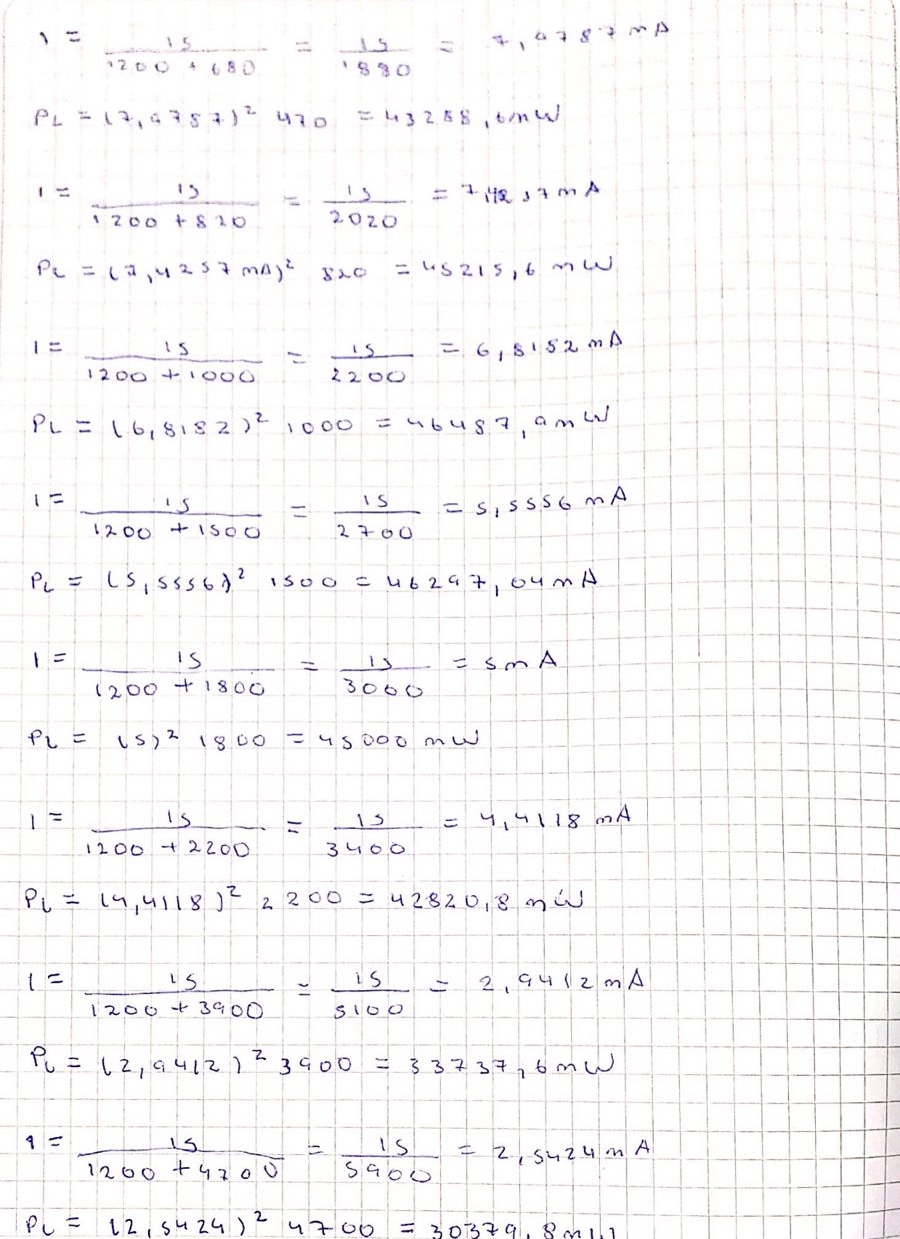 I = 15 / 1200 + 680 = 15 / 1880 = 7,9787 mA
PL = (7,9787)² 470 = 43288,6 mW
I = 15 / 1200 + 820 = 15 / 2020 = 7,4257 mA
PL = (7,4257 mA)² 820 = 45215,6 mW
I = 15 / 1200 + 1000 = 15 / 2200 = 6,8182 mA
PL = (6,8182)² 1000 = 46487,9 mW
I = 15 / 1200 + 1500 = 15 / 2700 = 5,5556 mA
PL = (5,5556)² 1500 = 46297,04 mA
I = 15 / 1200 + 1800 = 15 / 3000 = 5 mA
PL = (5)² 1800 = 45000 mW
I = 15 / 1200 + 2200 = 15 / 3400 = 4,4118 mA
PL = (4,4118)² 2200 = 42820,8 mW
I = 15 / 1200 + 3900 = 15 / 5100 = 2,9412 mA
PL = (2,9412)² 3900 = 33737,6 mW
I = 15 / 1200 + 4700 = 15 / 5900 = 2,5424 mA
PL = (2,5424)² 4700 = 30379,8 mW